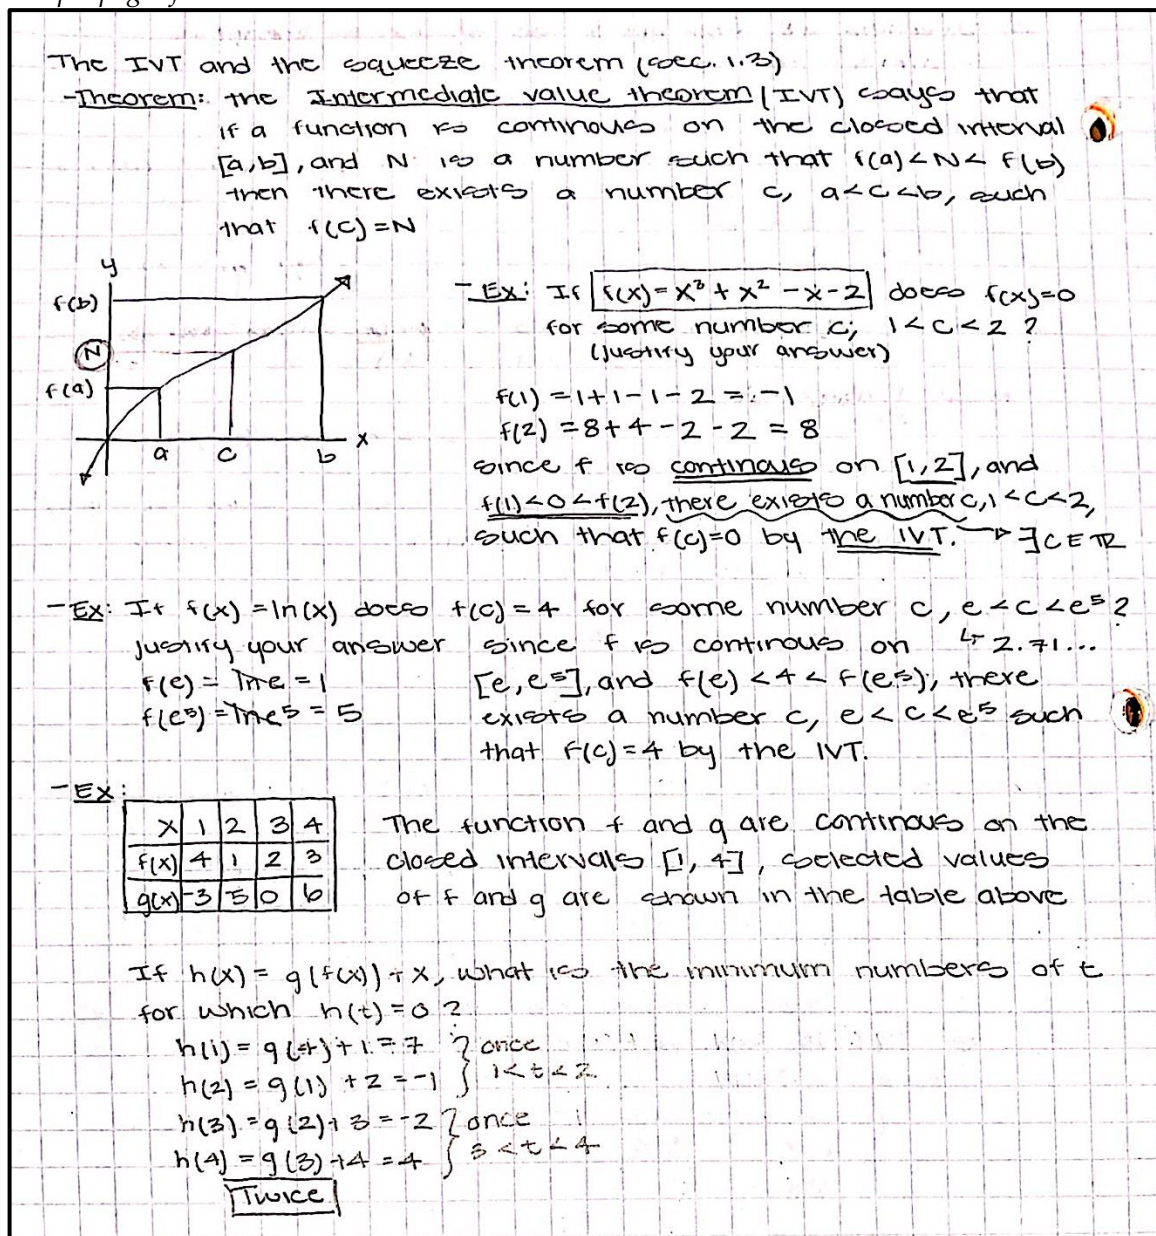 The IVT and the squeeze theorem (sec. 1.3)
-Theorem: the Intermediate value theorem (IVT) says that
if a function is continous on the closed interval
[a,b], and N is a number such that f(a)<N<f(b)
then there exists a number c, a<c<b, such
that f(c)=N
y
f(b)
N
f(a)
a c b x
-Ex: If f(x)=x³+x²-x-2 does f(x)=0
for some number c, 1<c<2?
(Justify your answer)
f(1)=1+1-1-2=-1
f(2)=8+4-2-2=8
since f is continous on [1,2], and
f(1)<0<f(2), there exists a number c, 1<c<2,
such that f(c)=0 by the IVT. → ∃c∈ℝ
-Ex: If f(x)=ln(x) does f(c)=4 for some number c, e<c<e⁵?
justify your answer since f is continous on ↳ 2.71...
f(e)=lne=1 [e,e⁵], and f(e)<4<f(e⁵), there
f(e⁵)=lne⁵=5 exists a number c, e<c<e⁵ such
that f(c)=4 by the IVT.
-Ex:
x 1 2 3 4 The function f and g are continous on the
f(x) 4 1 2 3 closed intervals [1, 4], selected values
g(x) -3 -5 0 6 of f and g are shown in the table above
If h(x)=g(f(x))+x, what is the minimum numbers of t
for which h(t)=0?
h(1)=g(4)+1=7 } once
h(2)=g(1)+2=-1 1<t<2
h(3)=g(2)+3=-2 } once
h(4)=g(3)+4=4 3<t<4
Twice